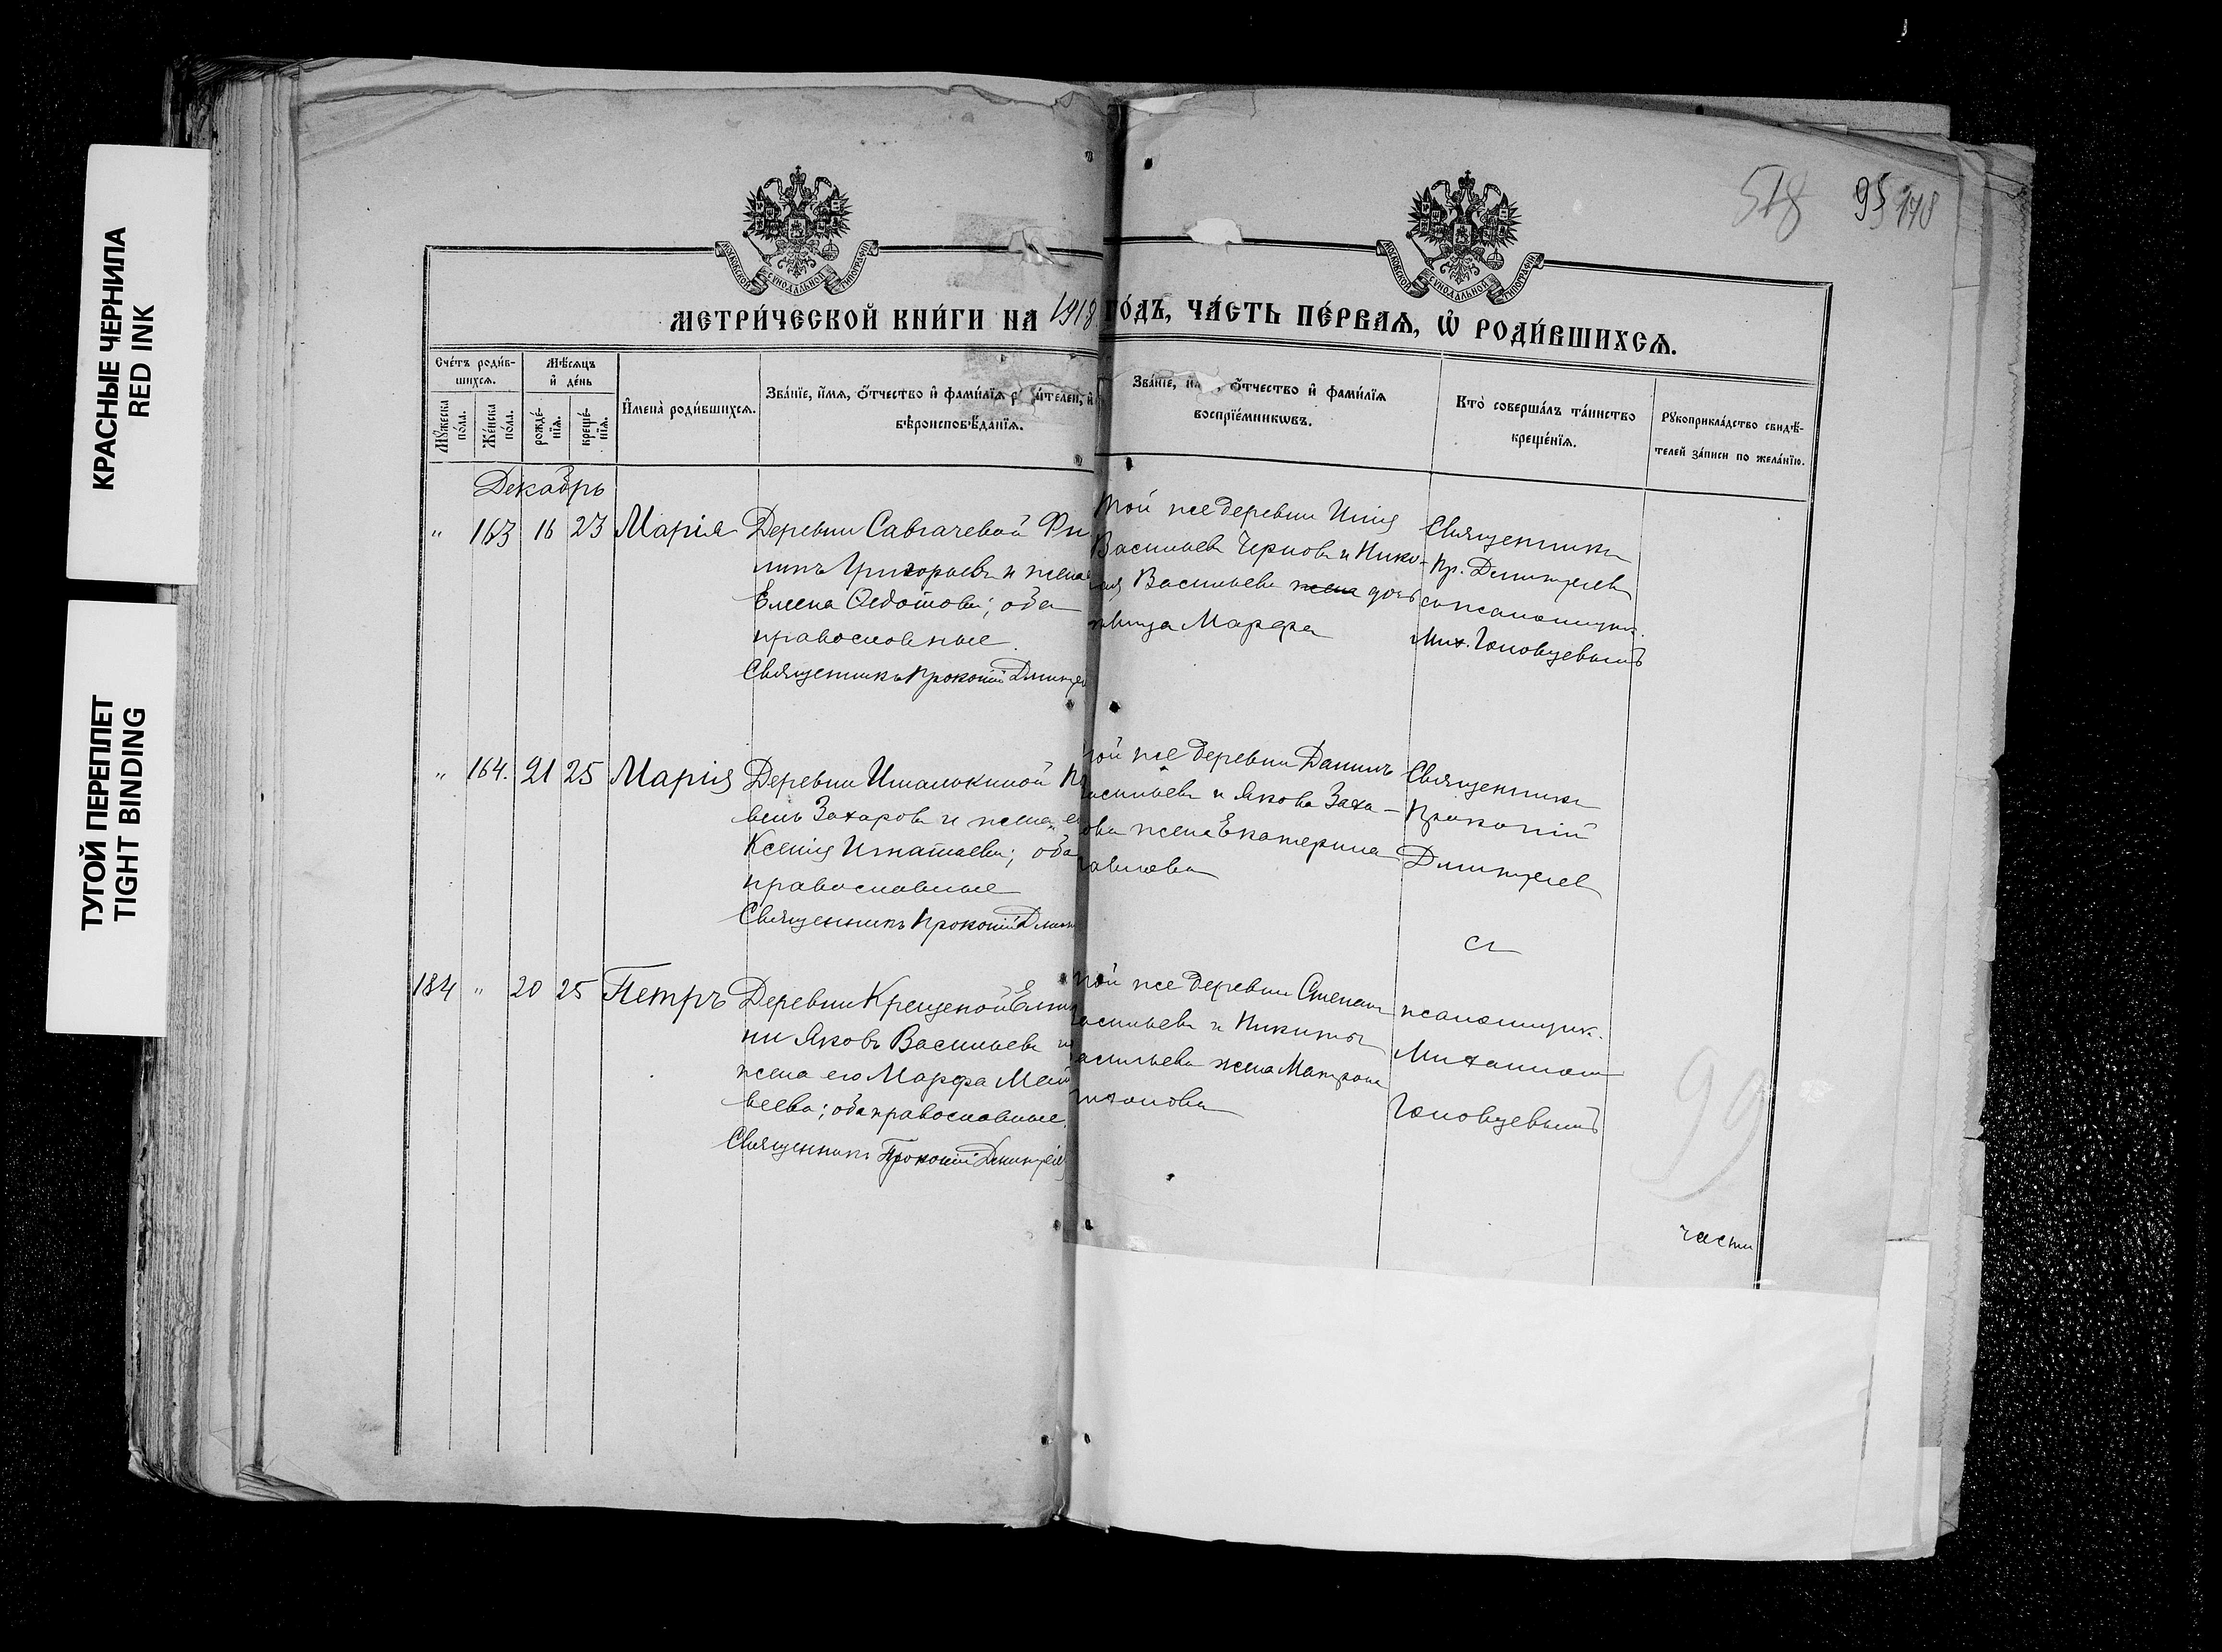 КРАСНЫЕ ЧЕРНИЛА
RED INK
ТУГОЙ ПЕРЕПЛЕТ
TIGHT BINDING
518 95
МОСКОВСКОЙ СѴНОДАЛЬНОЙ ТИПОГРАФІИ
МОСКОВСКОЙ СѴНОДАЛЬНОЙ ТИПОГРАФІИ
МЕТРИ́ЧЕСКОЙ КНИ́ГИ НА 1918 ГО́ДЪ, ЧА́СТЬ ПЕ́РВАѦ, Ѡ РОДИ́ВШИХСѦ.
Сче́тъ роди́в-
шихсѧ.
Мꙋ́жеска
по́ла.
Же́нска
по́ла.
Мѣ́сѧцъ
и де́нь
рожде́-
нїѧ.
креще́-
нїѧ.
Имена̀ роди́вшихсѧ.
Зва́нїе, и́мѧ, о́тчество и фами́лїѧ
вѣроисповѣ́данїѧ.
Зва́нїе, о́тчество и фами́лїѧ
воспрїе́мникѡвъ.
Кто̀ соверша́лъ та́инство
креще́нїѧ.
Рꙋкоприкла́дство свидѣ́-
телей за́писи по жела́нїю.
Декабрь
" 163 16 23 Марія Деревни Савгачевой Фи
липъ Григорьевъ и жена
Елена Федотова; оба
православные.
Священникъ Прокопій
Той же деревни
Васильевъ Черновъ и Нико-
лая Васильева жена дочь
дѣвица Марфа
Священникъ
Пр. Дмитріев
съ псаломщик.
Мих. Головцевымъ
" 164. 21 25 Марія Деревни
велъ Захаровъ и жена
Ксенія Игнатьева; оба
православные
Священникъ Прокопій
той же деревни Даніилъ
Васильевъ и Якова Заха-
рова жена Екатерина
Священникъ
Прокопій
Дмитріев
съ
184 " 20 25 Петръ Деревни Крещеной
ни Яковъ Васильевъ и
жена его Марфа Мат
веева; оба православные.
Священникъ Прокопій Дмитріев
той же деревни Степанъ
Васильевъ и Никиты
Васильева жена Матрона
псаломщик.
Михаилом
Головцевымъ
99
части